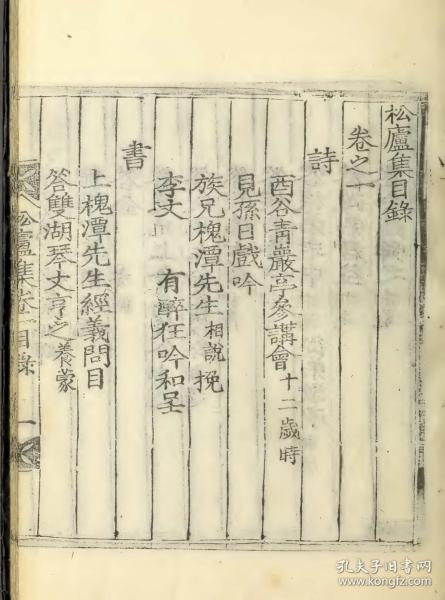 松廬集目錄
卷之一
詩
酉谷靑巖亭參講會十二歲時
見孫日戲吟
族兄槐潭先生相說挽
李丈 有醉狂吟和呈
書
上槐潭先生經義問目
答雙湖琴丈亨之養蒙
松廬集卷一目錄 一
孔夫子旧书网
www.kongfz.com